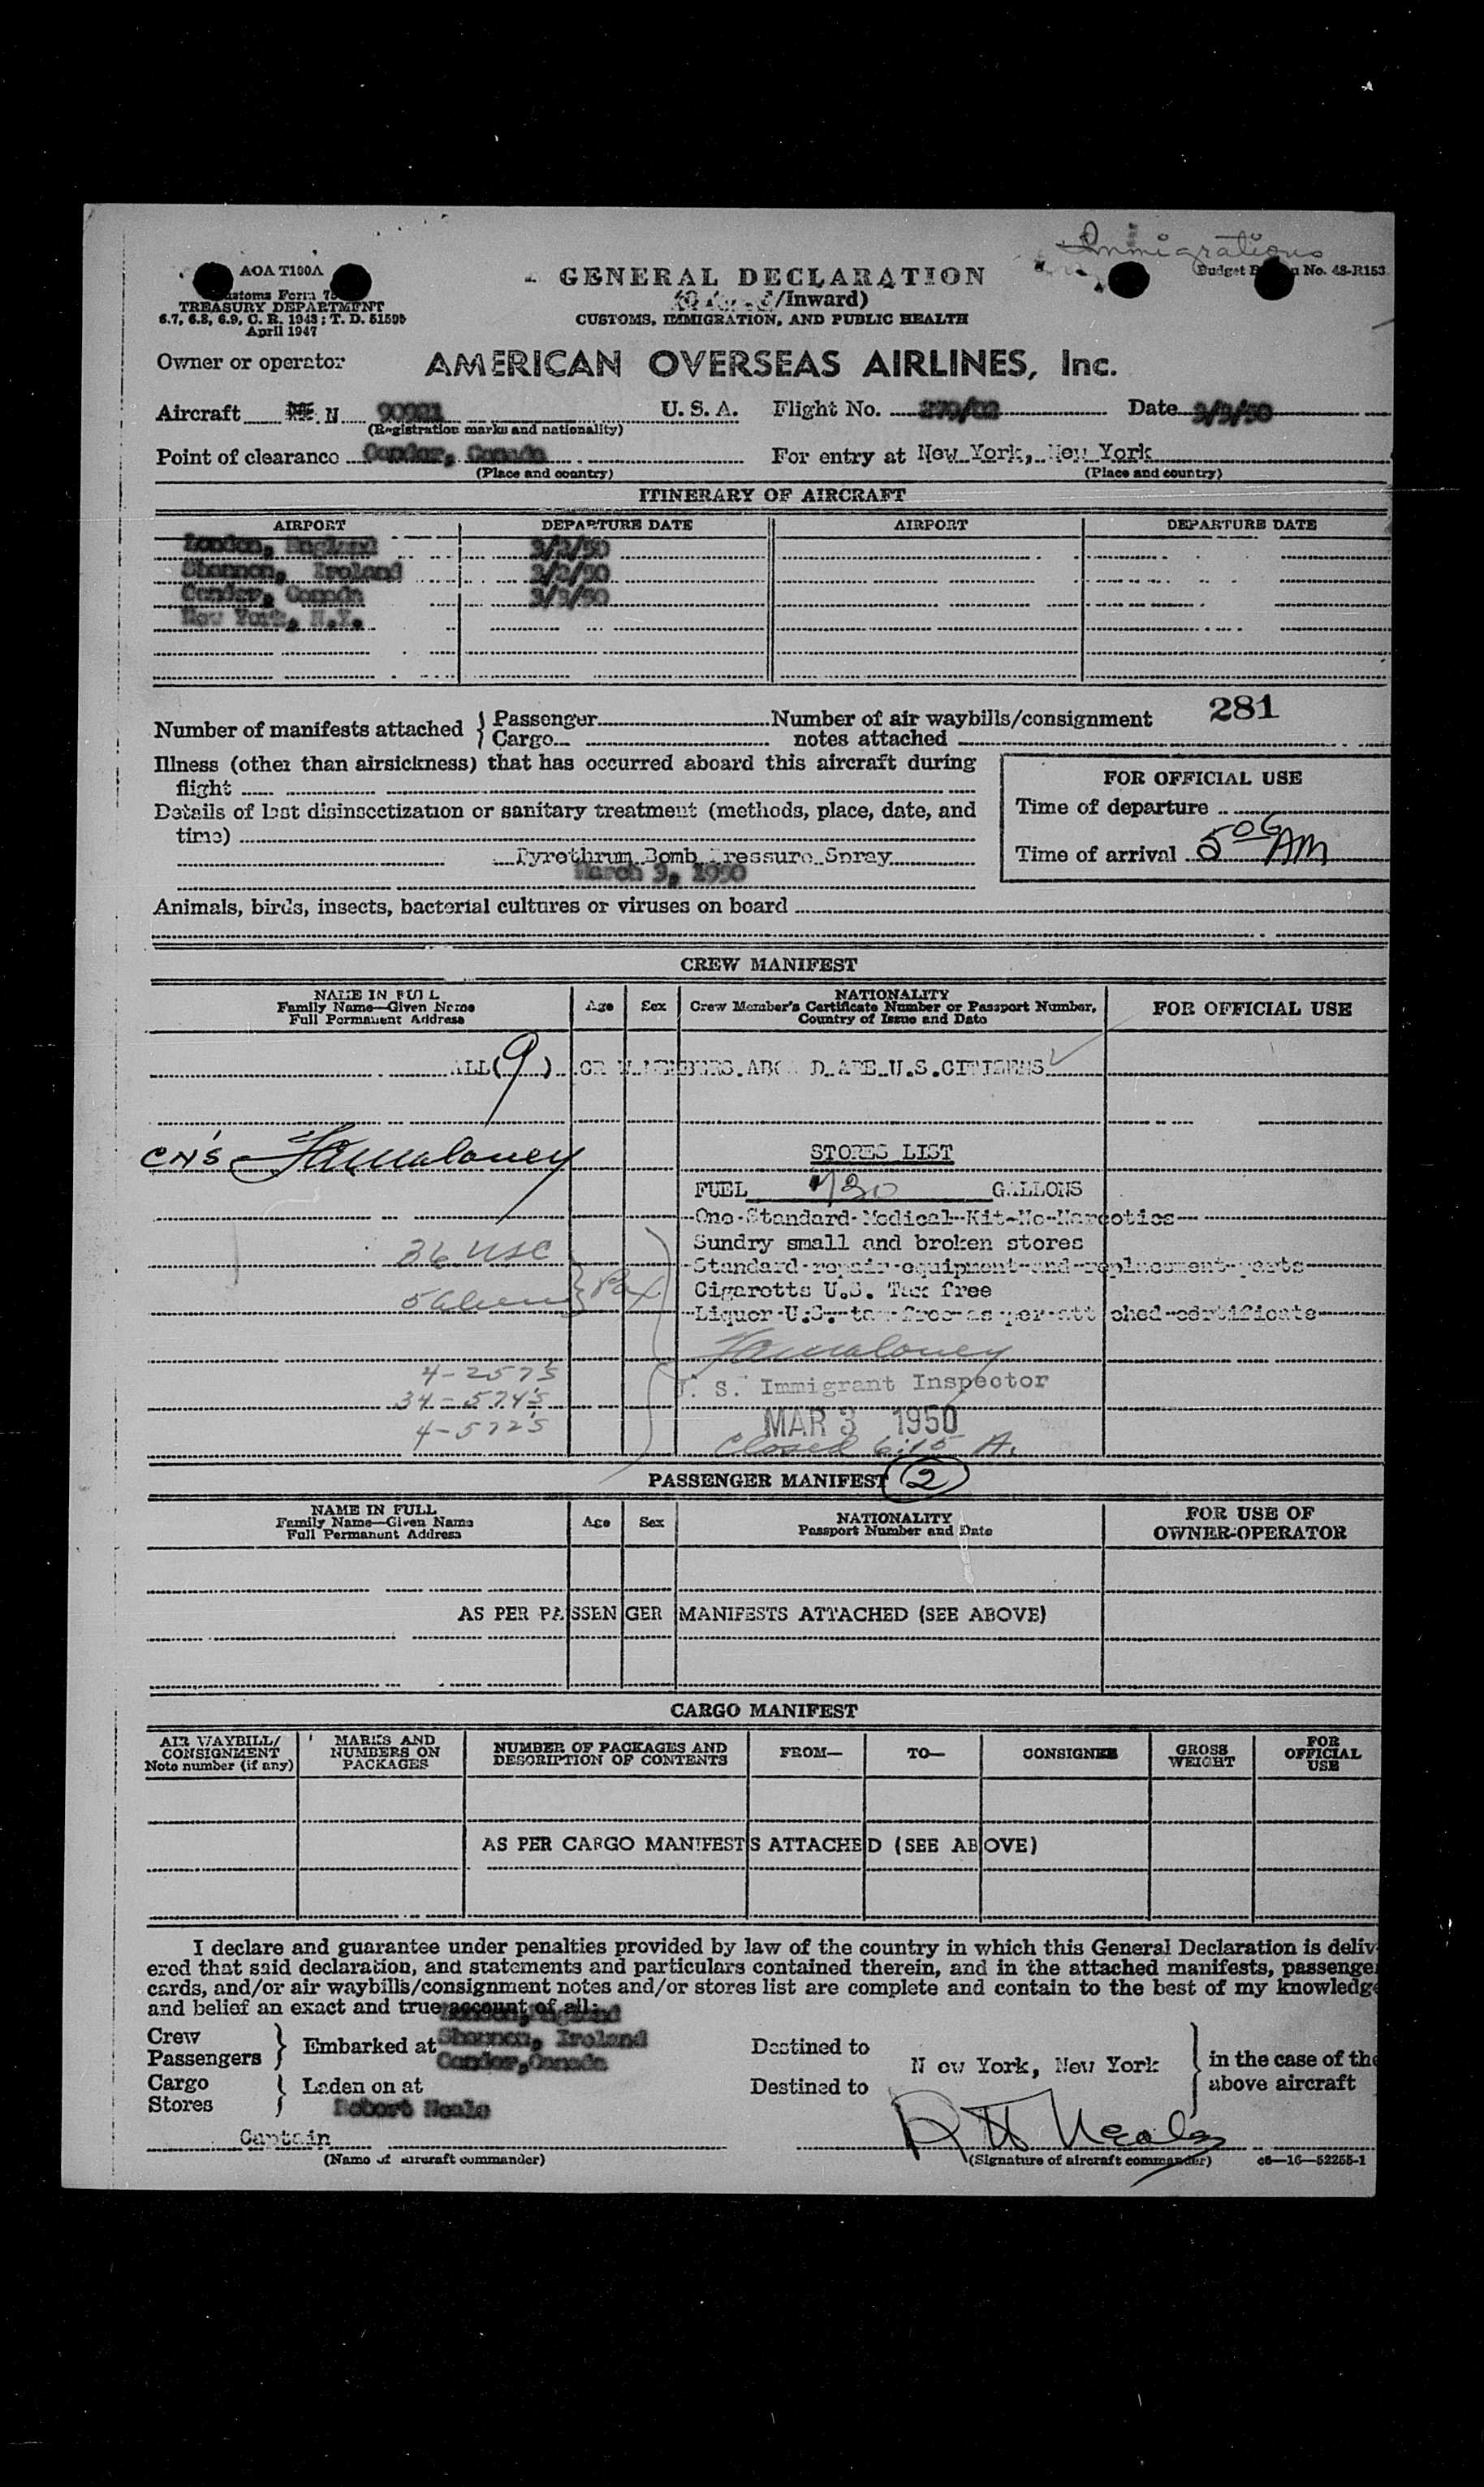 Immigrations
AOA T100A
Customs Form 75
TREASURY DEPARTMENT
6.7, 6.8, 6.9, C. R. 1943; T. D. 51595
April 1947
GENERAL DECLARATION
/Inward)
CUSTOMS, IMMIGRATION, AND PUBLIC HEALTH
Budget No. 48-R153
Owner or operator AMERICAN OVERSEAS AIRLINES, Inc.
Aircraft N 90921 U. S. A. Flight No. Date 3/3/50
(Registration marks and nationality)
Point of clearance Gander, Canada For entry at New York, New York
(Place and country) (Place and country)
ITINERARY OF AIRCRAFT
AIRPORT DEPARTURE DATE AIRPORT DEPARTURE DATE
London, England 3/2/50
Shannon, Ireland 3/2/50
Gander, Canada 3/3/50
New York, N.Y.
281
Number of manifests attached { Passenger Number of air waybills/consignment
Cargo notes attached
Illness (other than airsickness) that has occurred aboard this aircraft during
flight
Details of last disinsectization or sanitary treatment (methods, place, date, and
time)
Pyrethrum Bomb Pressure Spray
March 3, 1950
FOR OFFICIAL USE
Time of departure
Time of arrival AM
Animals, birds, insects, bacterial cultures or viruses on board
CREW MANIFEST
NAME IN FULL
Family Name—Given Name
Full Permanent Address
Age Sex
NATIONALITY
Crew Member's Certificate Number or Passport Number,
Country of Issue and Date
FOR OFFICIAL USE
ALL (9) CREW MEMBERS ABOARD ARE U.S. CITIZENS
CN'S
STORES LIST
FUEL GALLONS
One Standard Medical Kit-No-Narcotics
Sundry small and broken stores
Standard repair equipment and replacement parts
Cigaretts U.S. Tax free
Liquor U.S. tax free as per attached certificate
36 USC
5 Aliens } Pax
4-257's
34-574's
4-572's
U. S. Immigrant Inspector
MAR 3 1950
Closed 6:15 A.
PASSENGER MANIFEST 2
NAME IN FULL
Family Name—Given Name
Full Permanent Address
Age Sex
NATIONALITY
Passport Number and Date
FOR USE OF
OWNER-OPERATOR
AS PER PASSENGER MANIFESTS ATTACHED (SEE ABOVE)
CARGO MANIFEST
AIR WAYBILL/
CONSIGNMENT
Note number (if any)
MARKS AND
NUMBERS ON
PACKAGES
NUMBER OF PACKAGES AND
DESCRIPTION OF CONTENTS
FROM— TO— CONSIGNEE
GROSS
WEIGHT
FOR
OFFICIAL
USE
AS PER CARGO MANIFESTS ATTACHED (SEE ABOVE)
I declare and guarantee under penalties provided by law of the country in which this General Declaration is deliv-
ered that said declaration, and statements and particulars contained therein, and in the attached manifests, passenger
cards, and/or air waybills/consignment notes and/or stores list are complete and contain to the best of my knowledge
and belief an exact and true account of all:
London, England
Crew
Passengers } Embarked at Shannon, Ireland
Gander, Canada
Destined to
Cargo
Stores } Laden on at
Destined to
New York, New York } in the case of the
above aircraft
Robert Neale
Captain R H Neale
(Name of aircraft commander) (Signature of aircraft commander) c6—16—52255-1